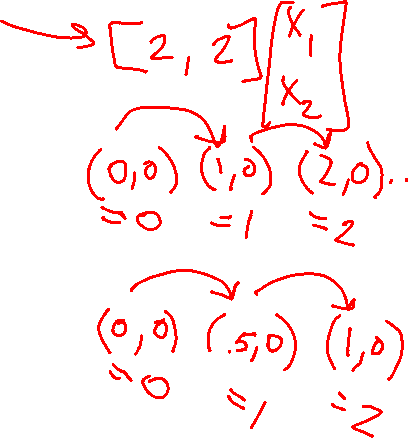 [2, 2] [X₁
X₂]
(0,0) (1,0) (2,0)..
=0 =1 =2
(0,0) (.5,0) (1,0)
=0 =1 =2